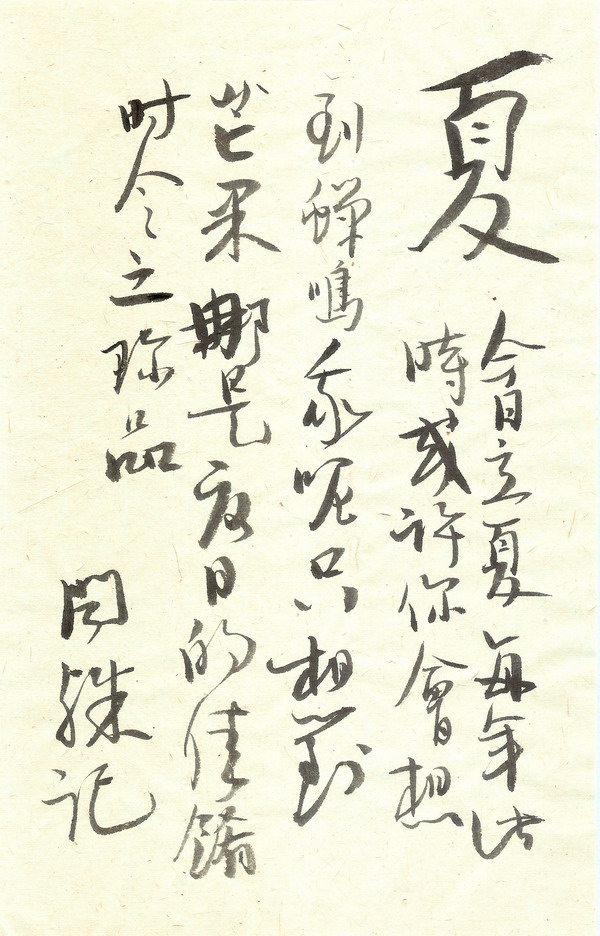 夏
今日立夏每年此
時或许你會想
到蟬鳴我呢只想
芒果那是夏日的佳餚
时令之珍品
记